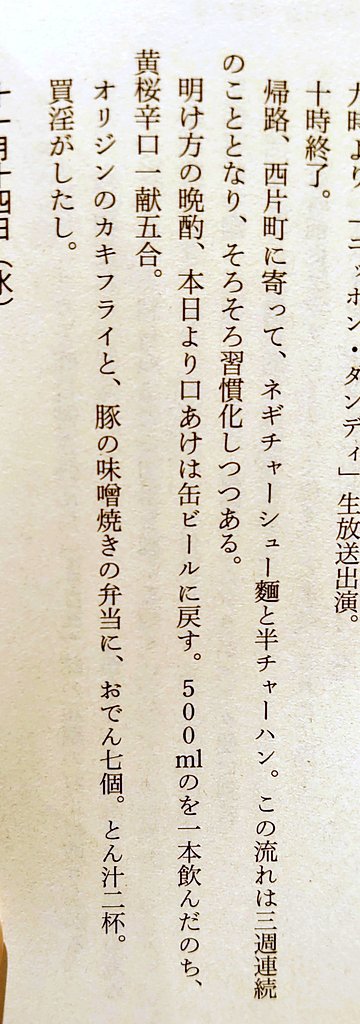 九時より、「ニッポン・ダンディ」生放送出演。
十時終了。
帰路、西片町に寄って、ネギチャーシュー麵と半チャーハン。この流れは三週連続
のこととなり、そろそろ習慣化しつつある。
明け方の晩酌、本日より口あけは缶ビールに戻す。500mlのを一本飲んだのち、
黄桜辛口一献五合。
オリジンのカキフライと、豚の味噌焼きの弁当に、おでん七個。とん汁二杯。
買淫がしたし。
十一月十四日（水）